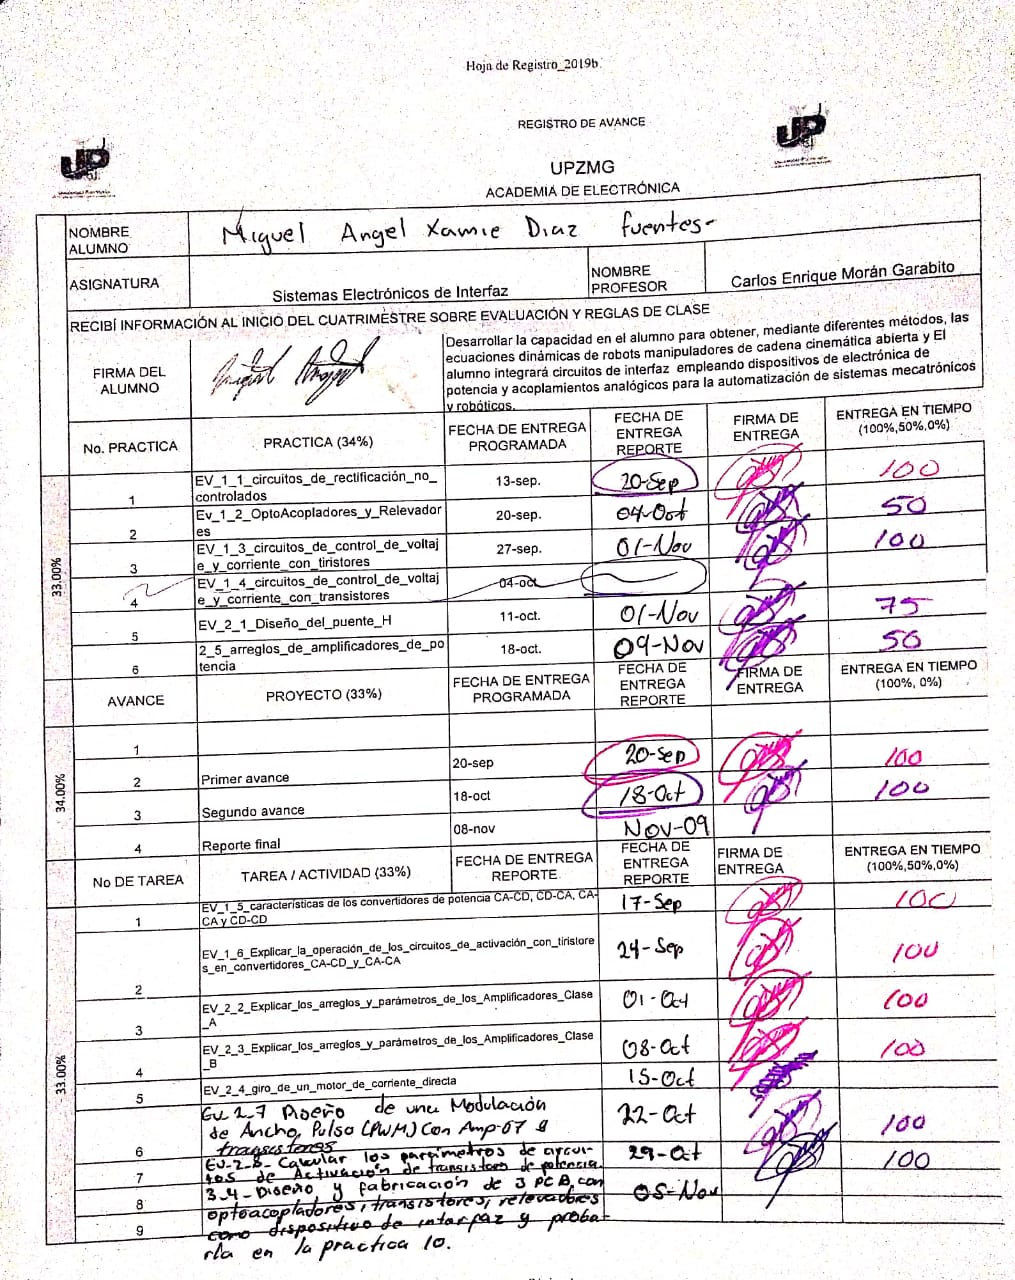 Hoja de Registro_2019b
REGISTRO DE AVANCE
UP
UP
UPZMG
ACADEMIA DE ELECTRÓNICA
NOMBRE ALUMNO
Miguel Angel Xamie Diaz fuentes-
ASIGNATURA
Sistemas Electrónicos de Interfaz
NOMBRE PROFESOR
Carlos Enrique Morán Garabito
RECIBÍ INFORMACIÓN AL INICIO DEL CUATRIMESTRE SOBRE EVALUACIÓN Y REGLAS DE CLASE
FIRMA DEL ALUMNO
Desarrollar la capacidad en el alumno para obtener, mediante diferentes métodos, las
ecuaciones dinámicas de robots manipuladores de cadena cinemática abierta y El
alumno integrará circuitos de interfaz empleando dispositivos de electrónica de
potencia y acoplamientos analógicos para la automatización de sistemas mecatrónicos
y robóticos.
No. PRACTICA PRACTICA (34%) FECHA DE ENTREGA PROGRAMADA FECHA DE ENTREGA REPORTE FIRMA DE ENTREGA ENTREGA EN TIEMPO (100%,50%,0%)
33.00%
1 EV_1_1_circuitos_de_rectificación_no_controlados 13-sep. 20-Sep 100
2 Ev_1_2_OptoAcopladores_y_Relevadores 20-sep. 04-Oct 50
3 EV_1_3_circuitos_de_control_de_voltaje_y_corriente_con_tiristores 27-sep. 01-Nov 100
4 EV_1_4_circuitos_de_control_de_voltaje_y_corriente_con_transistores 04-oct.
5 EV_2_1_Diseño_del_puente_H 11-oct. 01-Nov 75
6 2_5_arreglos_de_amplificadores_de_potencia 18-oct. 09-Nov 50
AVANCE PROYECTO (33%) FECHA DE ENTREGA PROGRAMADA FECHA DE ENTREGA REPORTE FIRMA DE ENTREGA ENTREGA EN TIEMPO (100%, 0%)
34.00%
1
2 Primer avance 20-sep 20-Sep 100
3 Segundo avance 18-oct 18-Oct 100
4 Reporte final 08-nov Nov-09
No DE TAREA TAREA / ACTIVIDAD (33%) FECHA DE ENTREGA REPORTE FECHA DE ENTREGA REPORTE FIRMA DE ENTREGA ENTREGA EN TIEMPO (100%,50%,0%)
33.00%
1 EV_1_5_características de los convertidores de potencia CA-CD, CD-CA, CA-CA y CD-CD 17-Sep 100
2 EV_1_6_Explicar_la_operación_de_los_circuitos_de_activación_con_tiristores_en_convertidores_CA-CD_y_CA-CA 24-Sep 100
3 EV_2_2_Explicar_los_arreglos_y_parámetros_de_los_Amplificadores_Clase_A 01-Oct 100
4 EV_2_3_Explicar_los_arreglos_y_parámetros_de_los_Amplificadores_Clase_B 08-Oct 100
5 EV_2_4_giro_de_un_motor_de_corriente_directa 15-Oct
Ev 2.7 Diseño de una Modulación
de Ancho, Pulso (PWM) Con Amp-07 y
6 transistores 22-Oct 100
EV-2-8- Calcular los parámetros de circui-
7 tos de Activación de transistores de potencia. 29-Oct 100
3_4-Diseño y fabricación de 3 PCB, con
8 optoacopladores, transistores, relevadores 05-Nov
9 como dispositivo de interfaz y probar
rla en la practica 10.